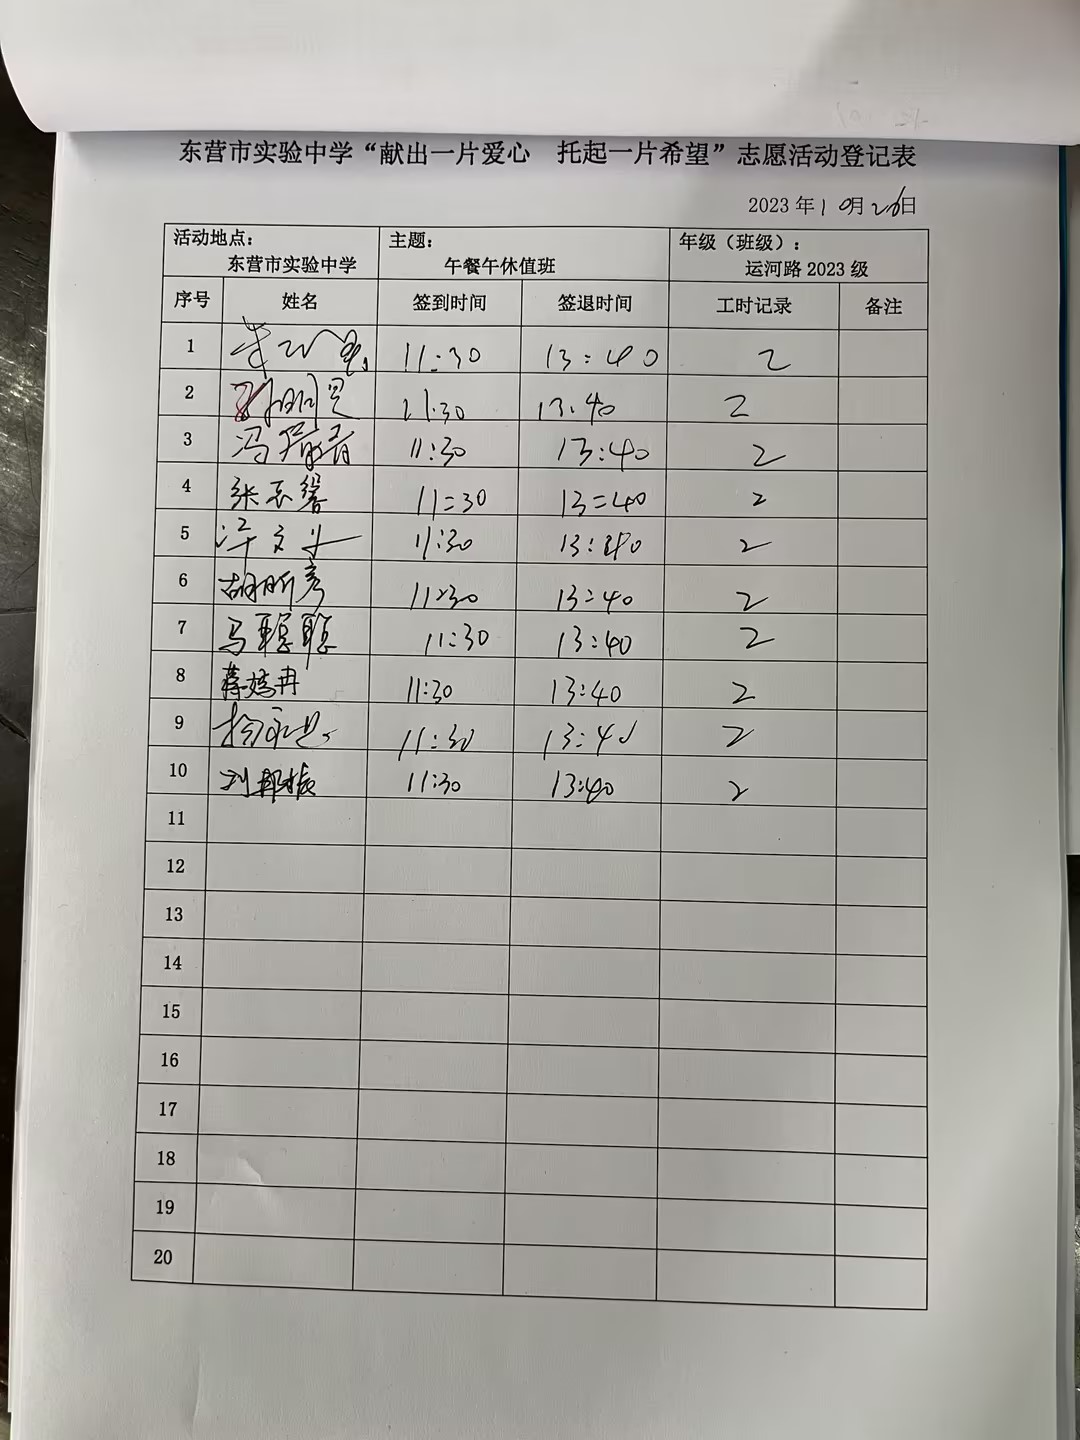 东营市实验中学“献出一片爱心 托起一片希望”志愿活动登记表
2023 年 10月 26日
活动地点: 主题: 年级（班级）:
东营市实验中学 午餐午休值班 运河路 2023 级
序号 姓名 签到时间 签退时间 工时记录 备注
1 11:30 13:40 2
2 11:30 13:40 2
3 冯 11:30 13:40 2
4 张志 11:30 13:40 2
5 11:30 13:40 2
6 胡昕彦 11:30 13:40 2
7 马聪聪 11:30 13:40 2
8 蒋嫣冉 11:30 13:40 2
9 杨 11:30 13:40 2
10 刘邦振 11:30 13:40 2
11
12
13
14
15
16
17
18
19
20